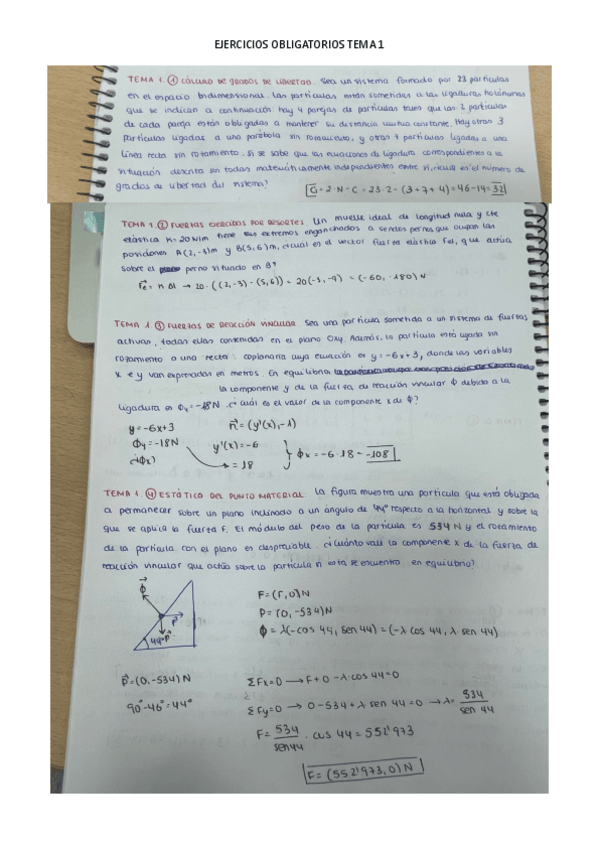 EJERCICIOS OBLIGATORIOS TEMA 1
TEMA 1. ① CÁLCULO DE GRADOS DE LIBERTAD. Sea un sistema formado por 23 partículas
en el espacio bidimensional. Las partículas están sometidas a las ligaduras holónomas
que se indican a continuación: Hay 4 parejas de partículas tales que las 2 partículas
de cada pareja están obligadas a mantener su distancia mutua constante. Hay otras 3
partículas ligadas a una parábola sin rozamiento, y otras 7 partículas ligadas a una
línea recta sin rozamiento. Si se sabe que las ecuaciones de ligadura correspondientes a la
situación descrita son todas matemáticamente independientes entre sí, ¿cuál es el número de
grados de libertad del sistema? G = 2·N - C = 23·2 - (3+7+4) = 46-14 = 32
TEMA 1. ② FUERZAS EJERCIDAS POR RESORTES. Un muelle ideal de longitud nula y cte
elástica K=20N/m tiene sus extremos enganchados a sendos pernos que ocupan las
posiciones A(2,-3)m y B(5,6)m, ¿cuál es el vector fuerza elástica Fel, que actúa
sobre el perno situado en B?
Fe = k Δl → 20·((2,-3)-(5,6)) = 20(-3,-9) = (-60, -180) N
TEMA 1. ③ FUERZAS DE REACCIÓN VINCULAR. Sea una partícula sometida a un sistema de fuerzas
activas, todas ellas contenidas en el plano Oxy. Además, la partícula está ligada sin
rozamiento a una recta coplanaria cuya ecuación es y=-6x+3, donde las variables
x e y van expresadas en metros. En equilibrio
la componente y de la fuerza de reacción vincular Φ debido a la
ligadura es Φy=-18N. ¿Cuál es el valor de la componente x de Φ?
y=-6x+3 n⃗=(y'(x),-1)
Φy=-18N y'(x)=-6
¿Φx? = 18 Φx = -6·18 = -108
TEMA 1. ④ ESTÁTICA DEL PUNTO MATERIAL. La figura muestra una partícula que está obligada
a permanecer sobre un plano inclinado a un ángulo de 44° respecto a la horizontal y sobre la
que se aplica la fuerza F. El módulo del peso de la partícula es 534 N y el rozamiento
de la partícula con el plano es despreciable. ¿Cuánto vale la componente x de la fuerza de
reacción vincular que actúa sobre la partícula si esta se encuentra en equilibrio?
Φ
F
44°
P
F=(F,0)N
P=(0,-534)N
Φ=λ(-cos 44, sen 44)=(-λ cos 44, λ·sen 44)
P⃗=(0,-534)N
90°-46°=44°
ΣFx=0 → F+0-λ·cos 44=0
ΣFy=0 → 0-534+λ sen 44=0 → λ=534/sen 44
F=534/sen44 · cos 44=552'973
F=(552'973,0)N